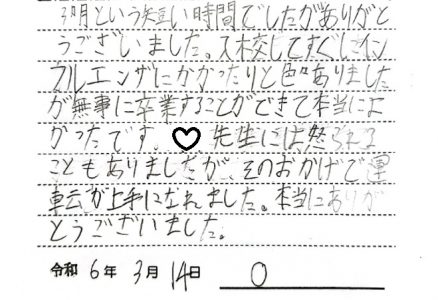 3ヶ月という短い時間でしたがありがと
うございました。入校してすぐにイン
フルエンザにかかったりと色々ありました
が無事に卒業することができて本当によ
かったです。♡先生には怒られる
こともありましたが、そのおかげで運
転が上手になれました。本当にありが
とうございました。
令和 6年 3月 14日 O